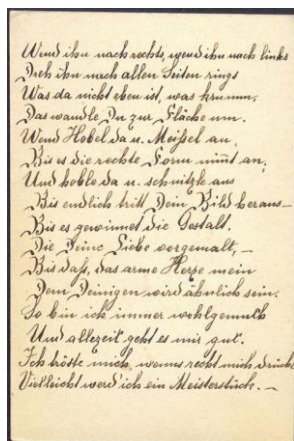 Wend ihn nach rechts, wend ihn nach links
Dreh ihn nach allen Seiten rings
Was da nicht eben ist, was krumm,
Das wandle Du zur Fläche um.
Wend Hobel da u. Meißel an,
Bis es die rechte Form nimmt an,
Und hoble da u. schnitzle aus
Bis endlich tritt Dein Bild heraus –
Bis es gewinnet die Gestalt.
Die Deine Liebe vorgemalt, –
Bis daß, das arme Herze mein
Dem Deinigen wird ähnlich sein.
So bin ich immer wohlgemuth
Und allezeit geht es mir gut.
Ich tröste mich, wenns recht mich drückt
Vielleicht werd' ich ein Meisterstück. –